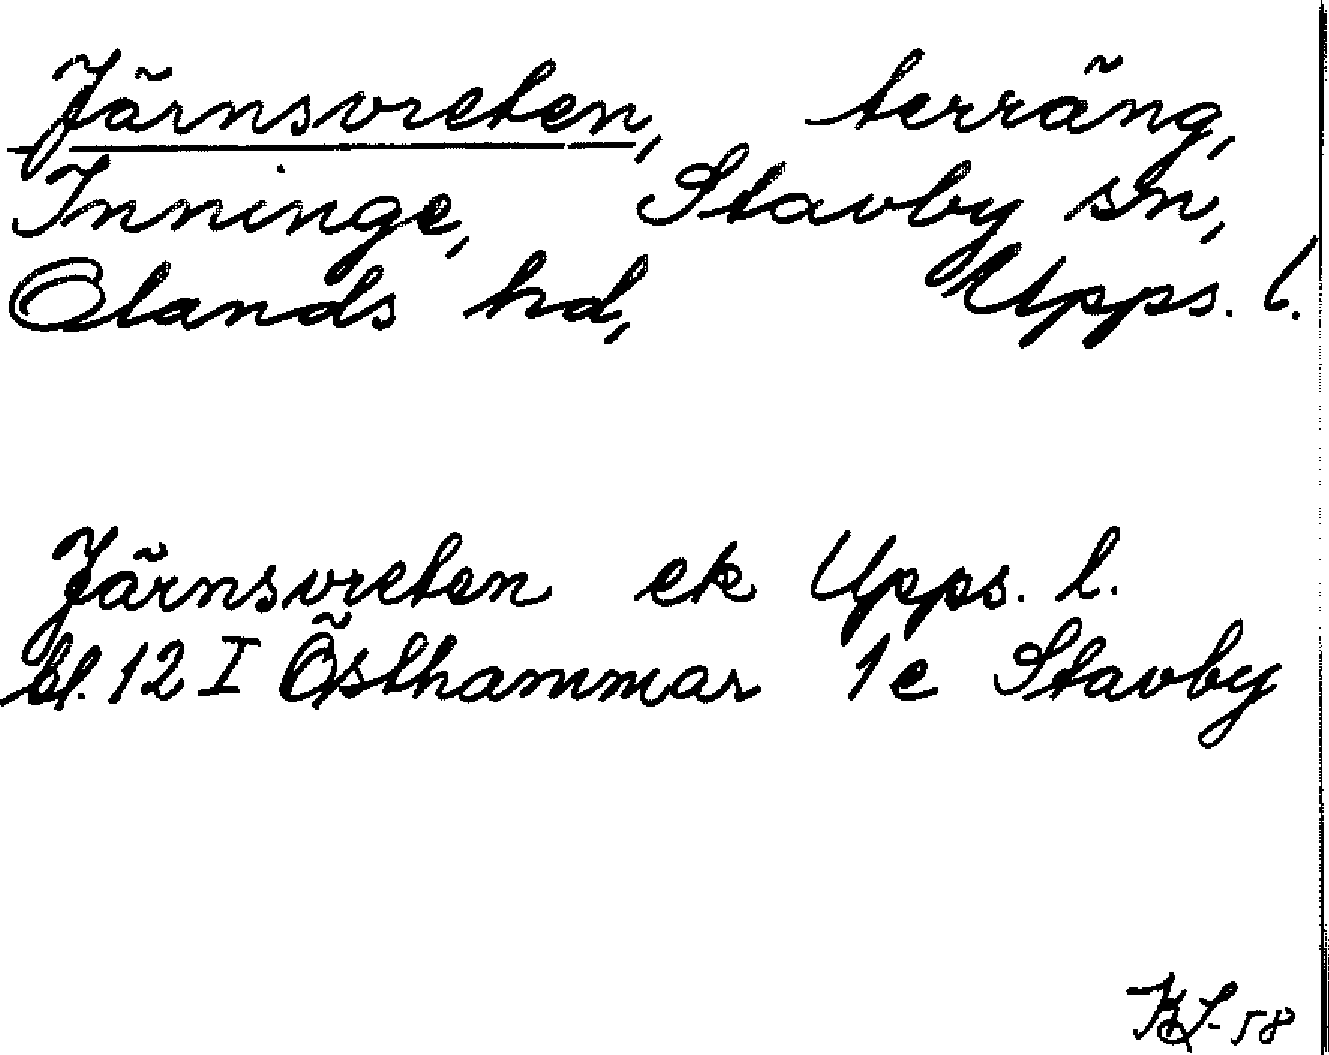 Järnsvreten, terräng,
Inninge, Stavby sn,
Olands hd, Upps. l.
Järnsvreten ek Upps. l.
bl. 12 I Östhammar 1e Stavby
KL-58